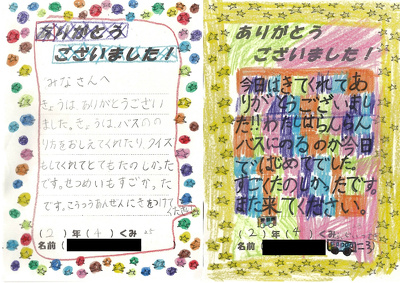 ありがとう
ございました!
みなさんへ
きょうは、ありがとうござい
ました。きょうは、バスののり
方をおしえてくれたり、クイズ
もしてくれてとてもたのしかった
です。せつめいもすごかった
です。こうつうあんぜんにきをつけて
ください
(2)年(4)くみ
名前
ありがとう
ございました!
今日はきてくれてあ
りがとうございまし
た!!わたしは
バスにのるのが今日
ではじめてでした。
すごくたのしかったです。
また来てください。
(2)年(4)くみ
名前